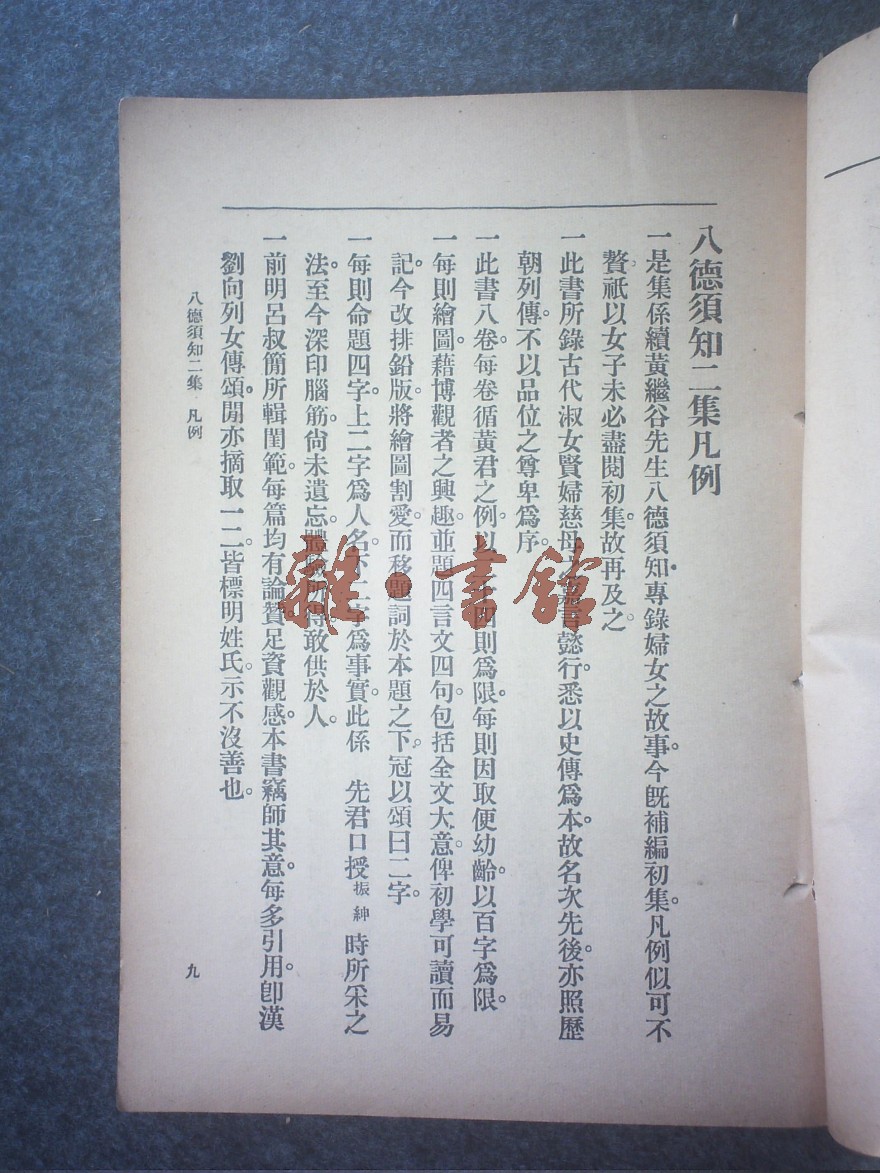 八德須知二集凡例
一是集係續黃繼谷先生八德須知專錄婦女之故事。今旣補編初集。凡例似可不
贅。祇以女子未必盡閱初集。故再及之
一此書所錄古代淑女賢婦慈母懿行。悉以史傳爲本。故名次先後。亦照歷
朝列傳。不以品位之尊卑爲序。
一此書八卷。每卷循黃君之例。以則爲限。每則因取便幼齡。以百字爲限。
一每則繪圖。藉博觀者之興趣。並題四言文四句。包括全文大意。俾初學可讀而易
記。今改排鉛版。將繪圖割愛。而移題詞於本題之下。冠以頌曰二字。
一每則命題四字。上二字爲人名。下二字爲事實。此係 先君口授振紳時所采之
法。至今深印腦筋。尙未遺忘。體驗所得。敢供於人。
一前明呂叔簡所輯閨範。每篇均有論贊。足資觀感。本書竊師其意。每多引用。卽漢
劉向列女傳頌。閒亦摘取一二。皆標明姓氏。示不沒善也。
八德須知二集 凡例
九
雜·書館